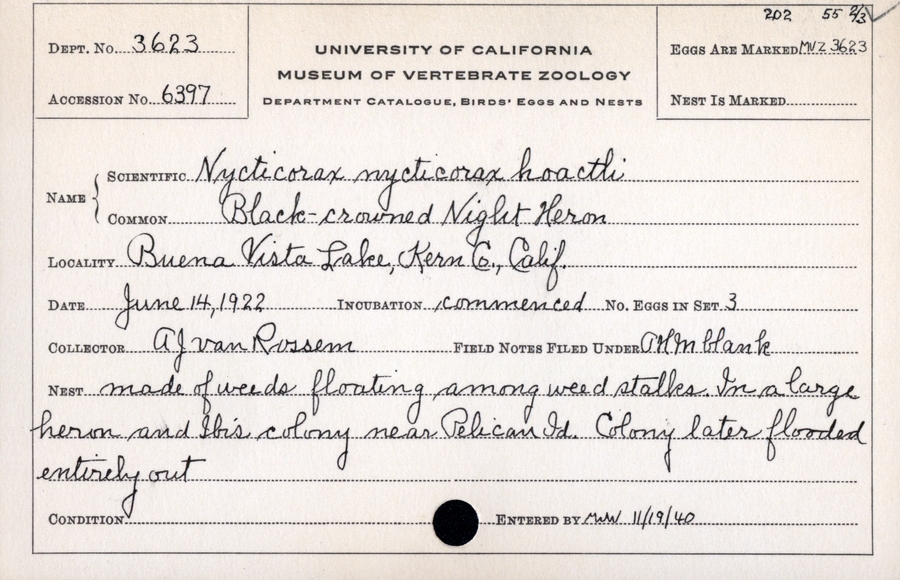 202 55 2/3
DEPT. No. 3623
UNIVERSITY OF CALIFORNIA
EGGS ARE MARKED MVZ 3623
MUSEUM OF VERTEBRATE ZOOLOGY
ACCESSION No. 6397
DEPARTMENT CATALOGUE, BIRDS' EGGS AND NESTS
NEST IS MARKED
NAME
SCIENTIFIC Nycticorax nycticorax hoactli
COMMON Black-crowned Night Heron
LOCALITY Buena Vista Lake, Kern Co., Calif.
DATE June 14, 1922 INCUBATION commenced No. EGGS IN SET 3
COLLECTOR AJ van Rossem FIELD NOTES FILED UNDER AHM blank
NEST made of weeds floating among weed stalks. In a large
heron and Ibis colony near Pelican Id. Colony later flooded
entirely out
CONDITION ENTERED BY MWW 11/19/40